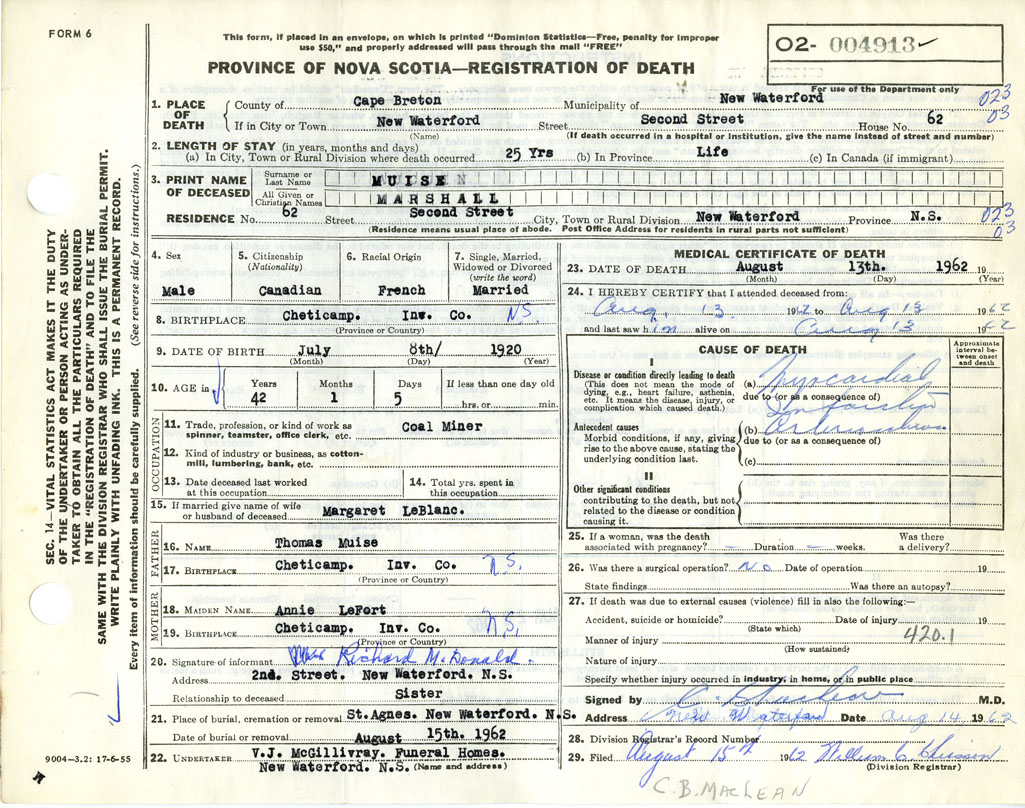 FORM 6
This form, if placed in an envelope, on which is printed "Dominion Statistics—Free, penalty for improper
use $50," and properly addressed will pass through the mail "FREE"
PROVINCE OF NOVA SCOTIA—REGISTRATION OF DEATH
02- 004913
For use of the Department only
1. PLACE OF DEATH County of Cape Breton Municipality of New Waterford 023
If in City or Town New Waterford Street Second Street House No. 62 03
(Name) (If death occurred in a hospital or institution, give the name instead of street and number)
2. LENGTH OF STAY (in years, months and days)
(a) In City, Town or Rural Division where death occurred 25 Yrs (b) In Province Life (c) In Canada (if immigrant)
3. PRINT NAME OF DECEASED Surname or Last Name MUISE
All Given or Christian Names MARSHALL
RESIDENCE No. 62 Street Second Street City, Town or Rural Division New Waterford Province N.S. 023
(Residence means usual place of abode. Post Office Address for residents in rural parts not sufficient) 03
4. Sex 5. Citizenship (Nationality) 6. Racial Origin 7. Single, Married, Widowed or Divorced (write the word)
Male Canadian French Married
8. BIRTHPLACE Cheticamp. Inv. Co. NS.
(Province or Country)
9. DATE OF BIRTH July 8th/ 1920
(Month) (Day) (Year)
10. AGE in Years Months Days If less than one day old
42 1 5 hrs. or min.
OCCUPATION
11. Trade, profession, or kind of work as Coal Miner
spinner, teamster, office clerk, etc.
12. Kind of industry or business, as cotton-
mill, lumbering, bank, etc.
13. Date deceased last worked at this occupation 14. Total yrs. spent in this occupation
15. If married give name of wife
or husband of deceased Margaret LeBlanc.
FATHER
16. NAME Thomas Muise
17. BIRTHPLACE Cheticamp. Inv. Co. N.S.
(Province or Country)
MOTHER
18. MAIDEN NAME Annie LeFort
19. BIRTHPLACE Cheticamp. Inv. Co. N.S.
(Province or Country)
20. Signature of informant Richard McDonald.
Address 2nd. Street. New Waterford. N.S.
Relationship to deceased Sister
21. Place of burial, cremation or removal St.Agnes. New Waterford. N.S.
Date of burial or removal August 15th. 1962
22. UNDERTAKER V.J. McGillivray. Funeral Homes.
New Waterford. N.S. (Name and address)
MEDICAL CERTIFICATE OF DEATH
23. DATE OF DEATH August 13th. 1962 19
(Month) (Day) (Year)
24. I HEREBY CERTIFY that I attended deceased from:
Aug. 13 1962 to Aug 13 1962
and last saw him alive on Aug 13 1962
CAUSE OF DEATH
Approximate interval between onset and death
I
Disease or condition directly leading to death
(This does not mean the mode of
dying, e.g., heart failure, asthenia,
etc. It means the disease, injury, or
complication which caused death.)
(a) Myocardial
due to (or as a consequence of)
Infarction
Antecedent causes
Morbid conditions, if any, giving
rise to the above cause, stating the
underlying condition last.
(b)
due to (or as a consequence of)
(c)
II
Other significant conditions
contributing to the death, but not
related to the disease or condition
causing it.
25. If a woman, was the death associated with pregnancy? – Duration – weeks. Was there a delivery?
26. Was there a surgical operation? No Date of operation 19
State findings Was there an autopsy?
27. If death was due to external causes (violence) fill in also the following:—
Accident, suicide or homicide? Date of injury 19
(State which)
Manner of injury 420.1
(How sustained)
Nature of injury
Specify whether injury occurred in industry, in home, or in public place
Signed by M.D.
Address New Waterford Date Aug 14 1962
28. Division Registrar's Record Number
29. Filed August 15th 1962 William C
(Division Registrar)
C.B. MACLEAN
SEC. 14—VITAL STATISTICS ACT MAKES IT THE DUTY
OF THE UNDERTAKER OR PERSON ACTING AS UNDER-
TAKER TO OBTAIN ALL THE PARTICULARS REQUIRED
IN THE "REGISTRATION OF DEATH" AND TO FILE THE
SAME WITH THE DIVISION REGISTRAR WHO SHALL ISSUE THE BURIAL PERMIT.
WRITE PLAINLY WITH UNFADING INK. THIS IS A PERMANENT RECORD.
Every item of information should be carefully supplied. (See reverse side for instructions.)
9004—3.2: 17-6-55